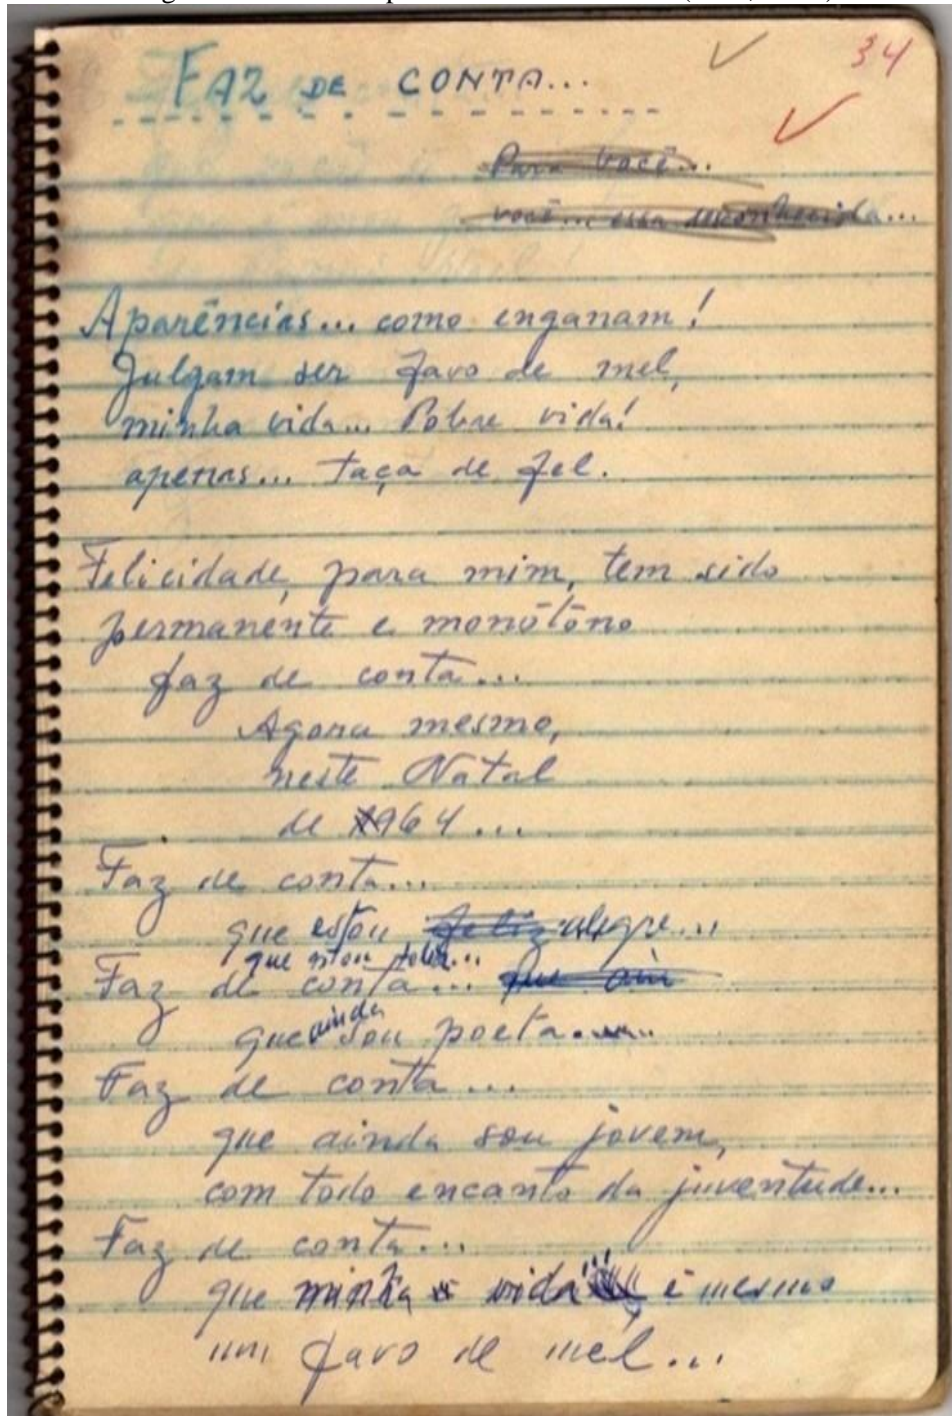 34
FAZ DE CONTA...
Para você...
você... essa desconhecida...
Aparências... como enganam!
Julgam ser favo de mel,
minha vida... Pobre vida!
apenas... taça de fel.
Felicidade, para mim, tem sido
permanente e monótono
faz de conta...
Agora mesmo,
neste Natal
de 1964...
Faz de conta...
que estou feliz alegre...
que estou feliz...
Faz de conta... que ain
que ainda sou poeta......
Faz de conta...
que ainda sou jovem,
com todo encanto da juventude...
Faz de conta...
que minha vida é mesmo
um favo de mél...